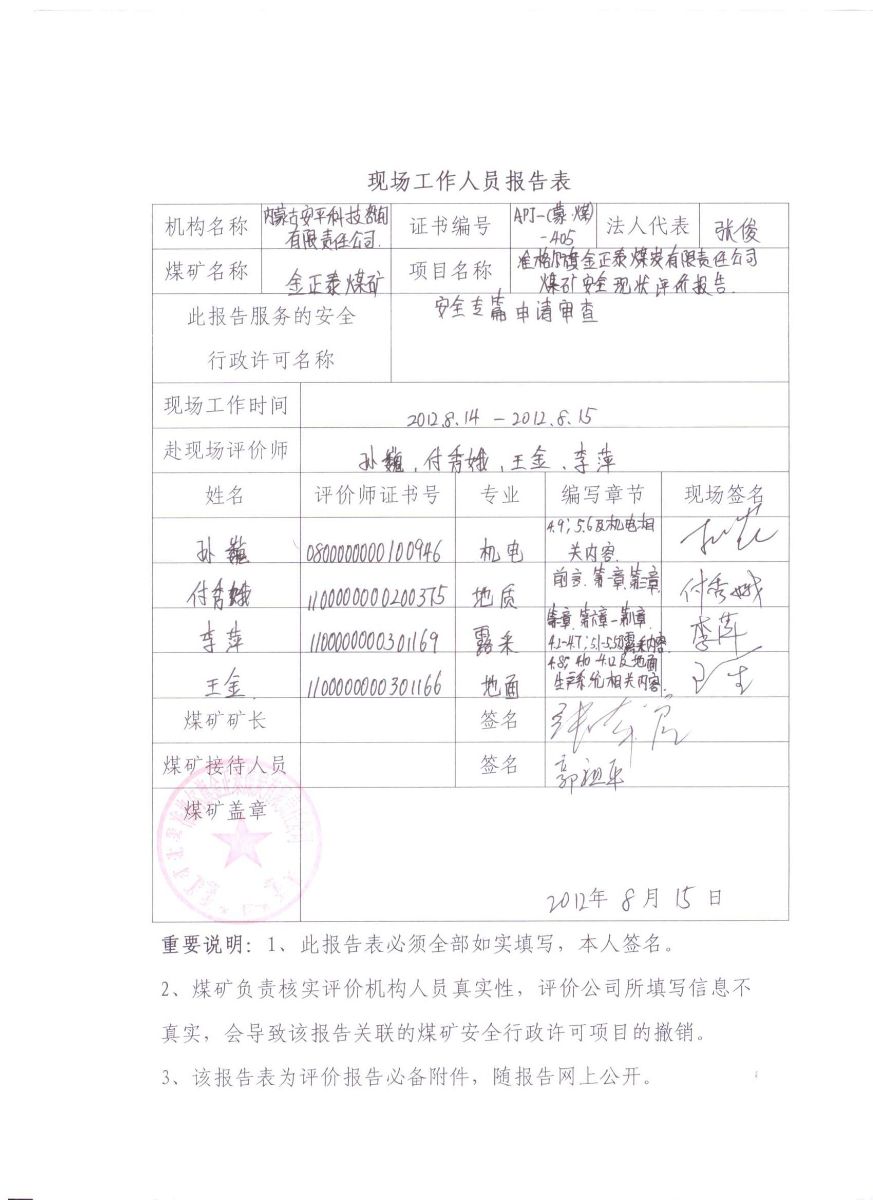 现场工作人员报告表
机构名称 内蒙古安平科技咨询 证书编号 API-(蒙·煤) 法人代表 张俊
有限责任公司. -405
煤矿名称 金正泰煤矿 项目名称 准格尔旗金正泰煤炭有限责任公司
煤矿安全现状评价报告.
此报告服务的安全 安全专篇申请审查
行政许可名称
现场工作时间 2012.8.14 — 2012.8.15
赴现场评价师 孙巍、付秀娥、王金、李萍
姓名 评价师证书号 专业 编写章节 现场签名
孙巍 0800000000100946 机电 4.9; 5.6及机电相
关内容.
付秀娥 1100000000200375 地质 前言. 付秀娥
李萍 1100000000301169 露采 李萍
王金. 1100000000301166 地面 4.8; 4.10-4.12及地面
生产系统相关内容.
煤矿矿长 签名
煤矿接待人员 签名 郭祖平
煤矿盖章
2012年 8月 15日
重要说明：1、此报告表必须全部如实填写，本人签名。
2、煤矿负责核实评价机构人员真实性，评价公司所填写信息不
真实，会导致该报告关联的煤矿安全行政许可项目的撤销。
3、该报告表为评价报告必备附件，随报告网上公开。